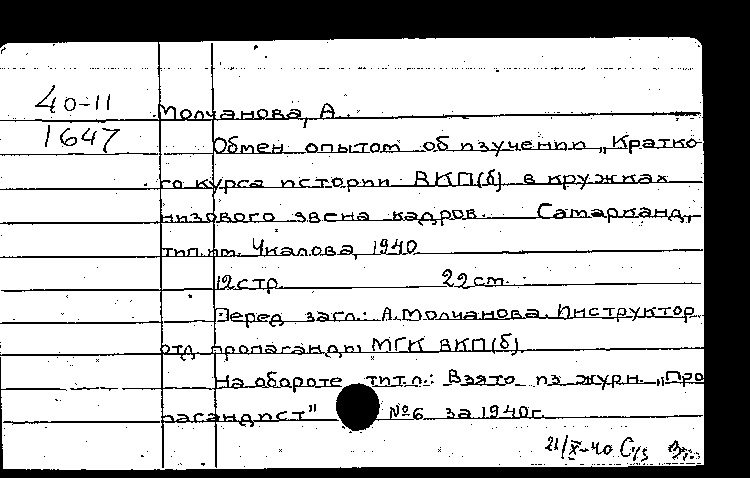 40-11
1647
Молчанова, А.
Обмен опытом об изучении „Кратко
го курса истории ВКП(б) в кружках
низового звена кадров. Самарканд,
тип.им. Чкалова, 1940
12стр. 22см.
Перед загл.: А.Молчанова. Инструктор
отд. пропаганды МГК ВКП(б).
На обороте тит.л.: Взято из журн. „Про
пагандист" №6 за 1940г.
21/X-40